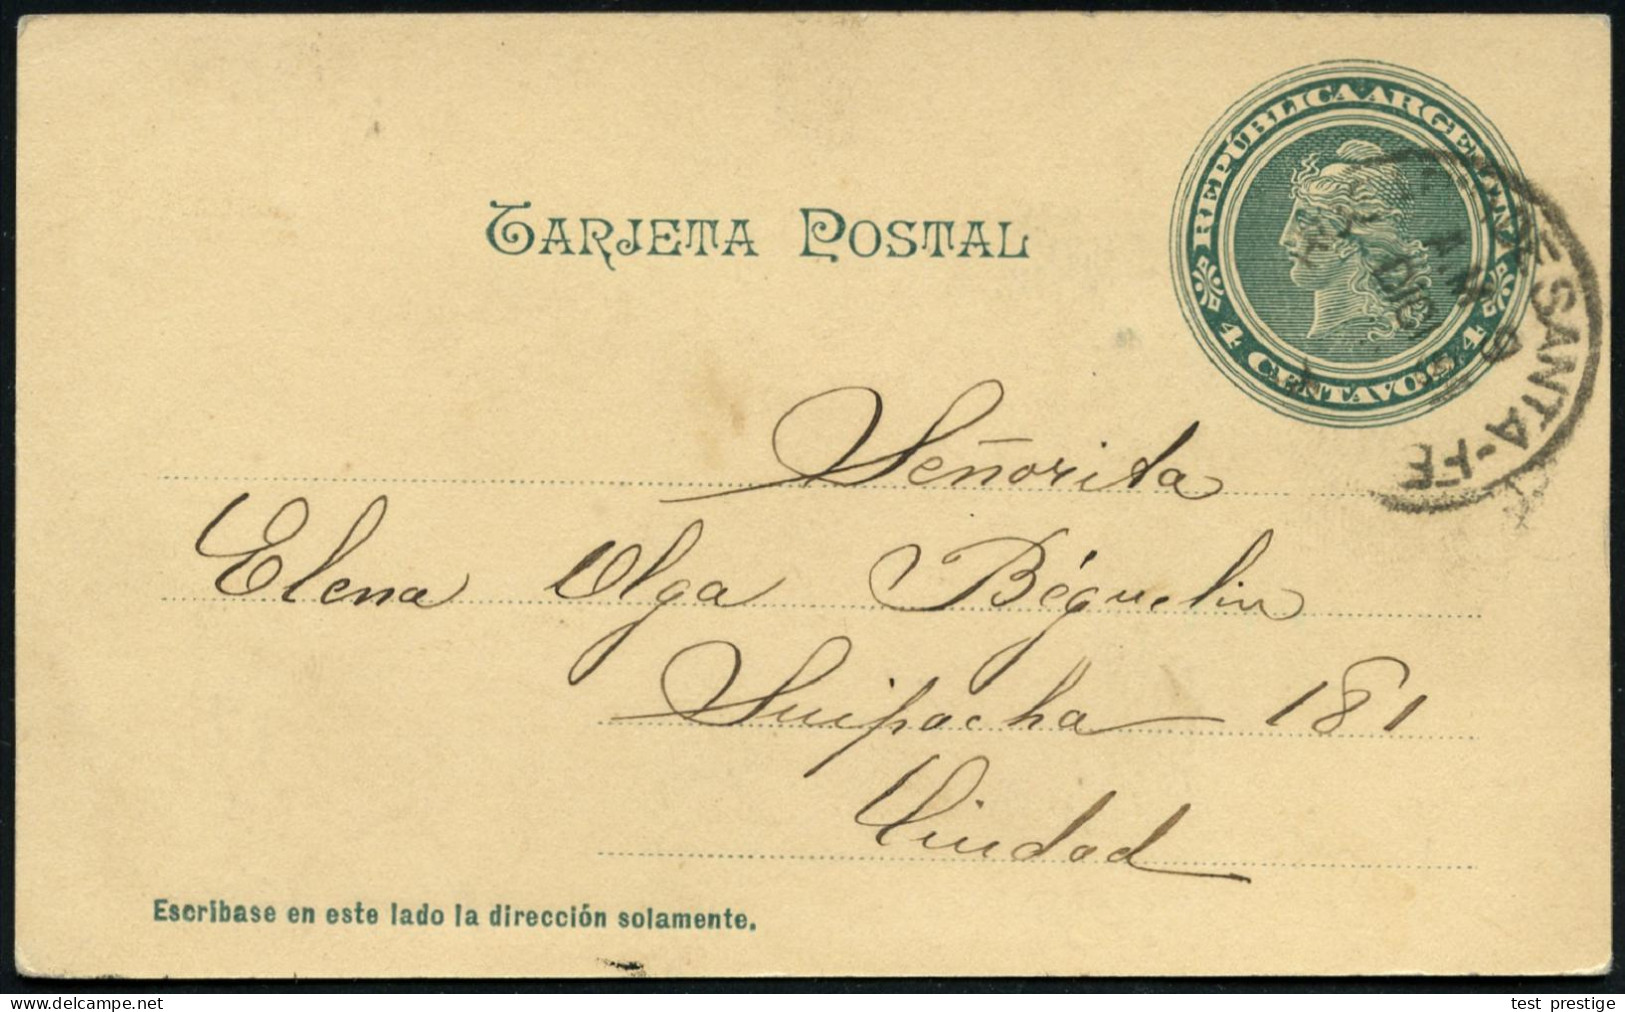 REPÚBLICA ARGENTINA
4 CENTAVOS 4
TARJETA POSTAL
SANTA-FE
Señorita
Elena Olga Béguelin
Suipacha 181
Ciudad
Escríbase en este lado la dirección solamente.
test prestige